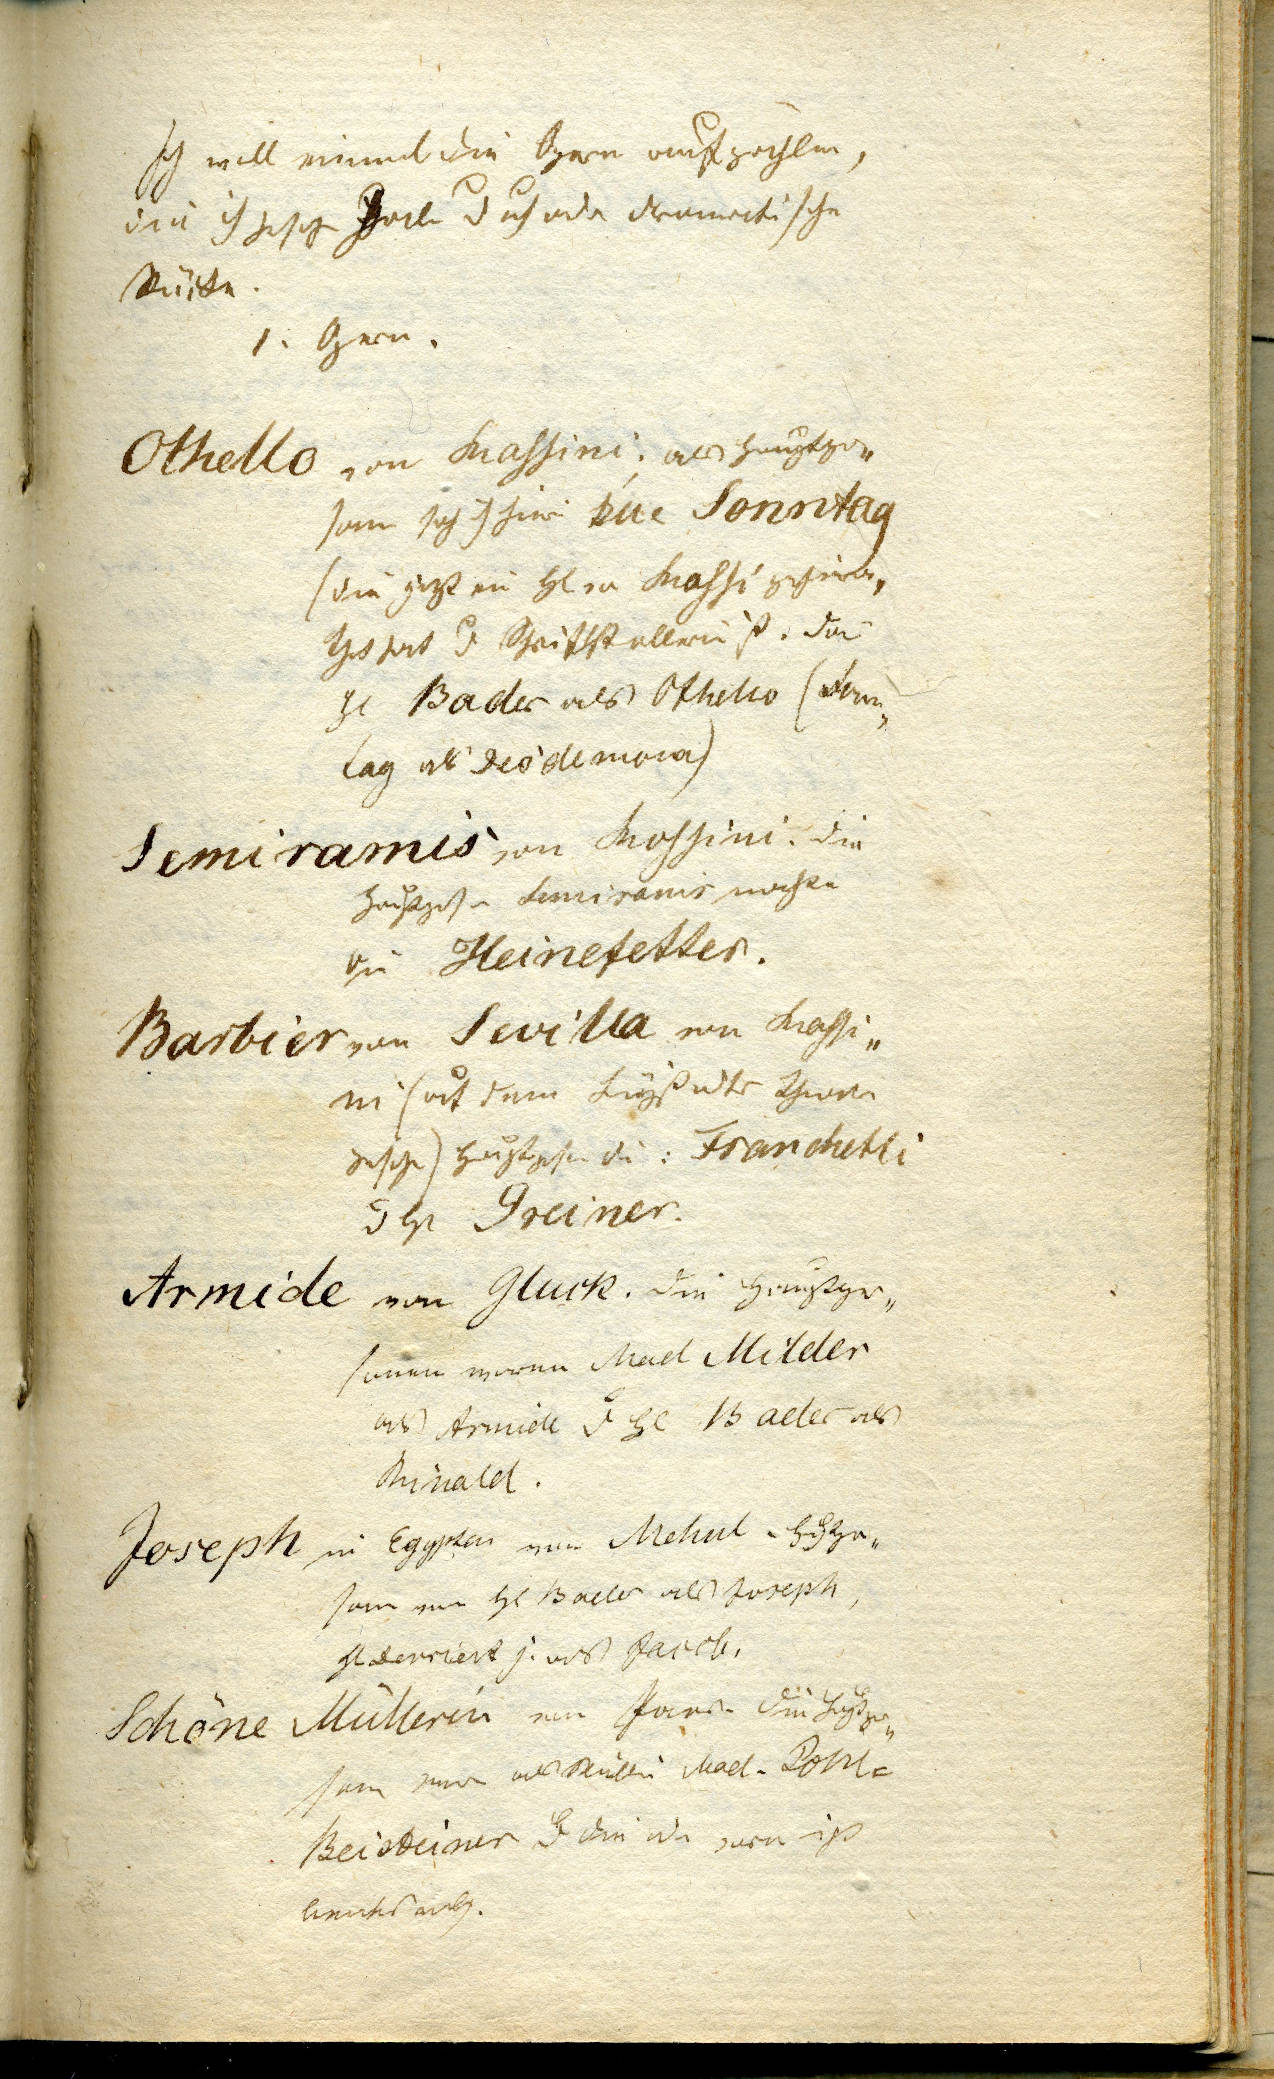 Ich will einmal die Opern aufzählen,
die ich gesehn habe u auch die dramatische
Stücke.
1. Opern.
Othello von Rossini. als Hauptper„
sonn sah ich hier Dlle Sonntag
(die jetzt ein H. Rossi geheira„
thet hat u Schriftstellerin ist. da
H Bader als Othello (Sonn„
tag als Desdemona)
Semiramis von Rossini. die
Hauptpers Semiramis machte
die Heinefetter.
Barbier von Sevilla von Rossi„
ni (auf dem Theater
gesehn) Hauptpers die: Franchetti
u H Greiner.
Armide von Gluck. die Hauptper„
sonen waren Mad Milder
als Armide u H Bader als
Rinald.
Joseph in Egypten von Mehul. Hauptper„
son war H Bader als Joseph,
H Devrient j. als Jacob.
Schöne Müllerin von Paer. die Hauptper„
son war als Müllerin Mad. Pohl=
Beisteiner u die